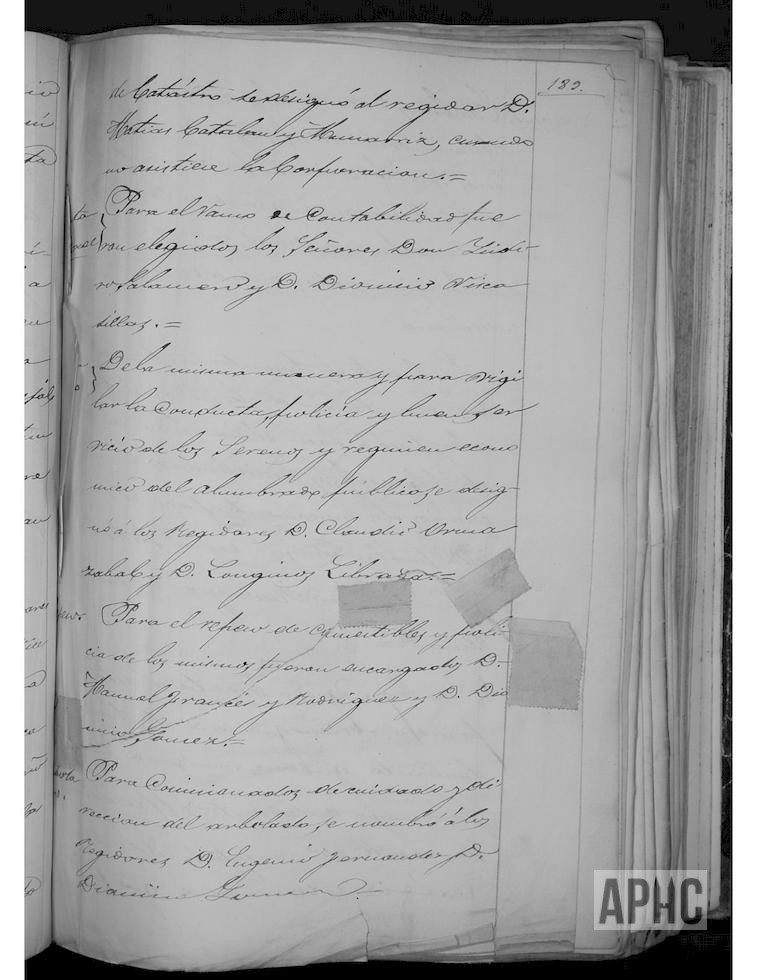 189.
de Catástro se designó al regidor D.
Matias Catalan y Munarriz, cuando
no asistiere la Corporacion.=
Para el Ramo de Contabilidad fue
ron elegidos los Señores Don Ysido
ro Salamero y D. Dionisio Visca
sillas.=
De la misma manera y para vigi
lar la Conducta, policía y buen ser
vicio de los Serenos y regimen econo
mico del alumbrado público, se desig-
nó á los Regidores D. Claudio Orma
zabal y D. Longinos Libraza.=
Para el repeso de comestibles y poli-
cia de los mismos fueron encargados D.
Manuel Francés y Rodriguez y D. Dio
nisio Gomez.=
Para Comisionados de cuidado y di
reccion del arbolado, se nombró á los
Regidores D. Eugenio Fernandez, D.
Dionisio Gomez
APHC